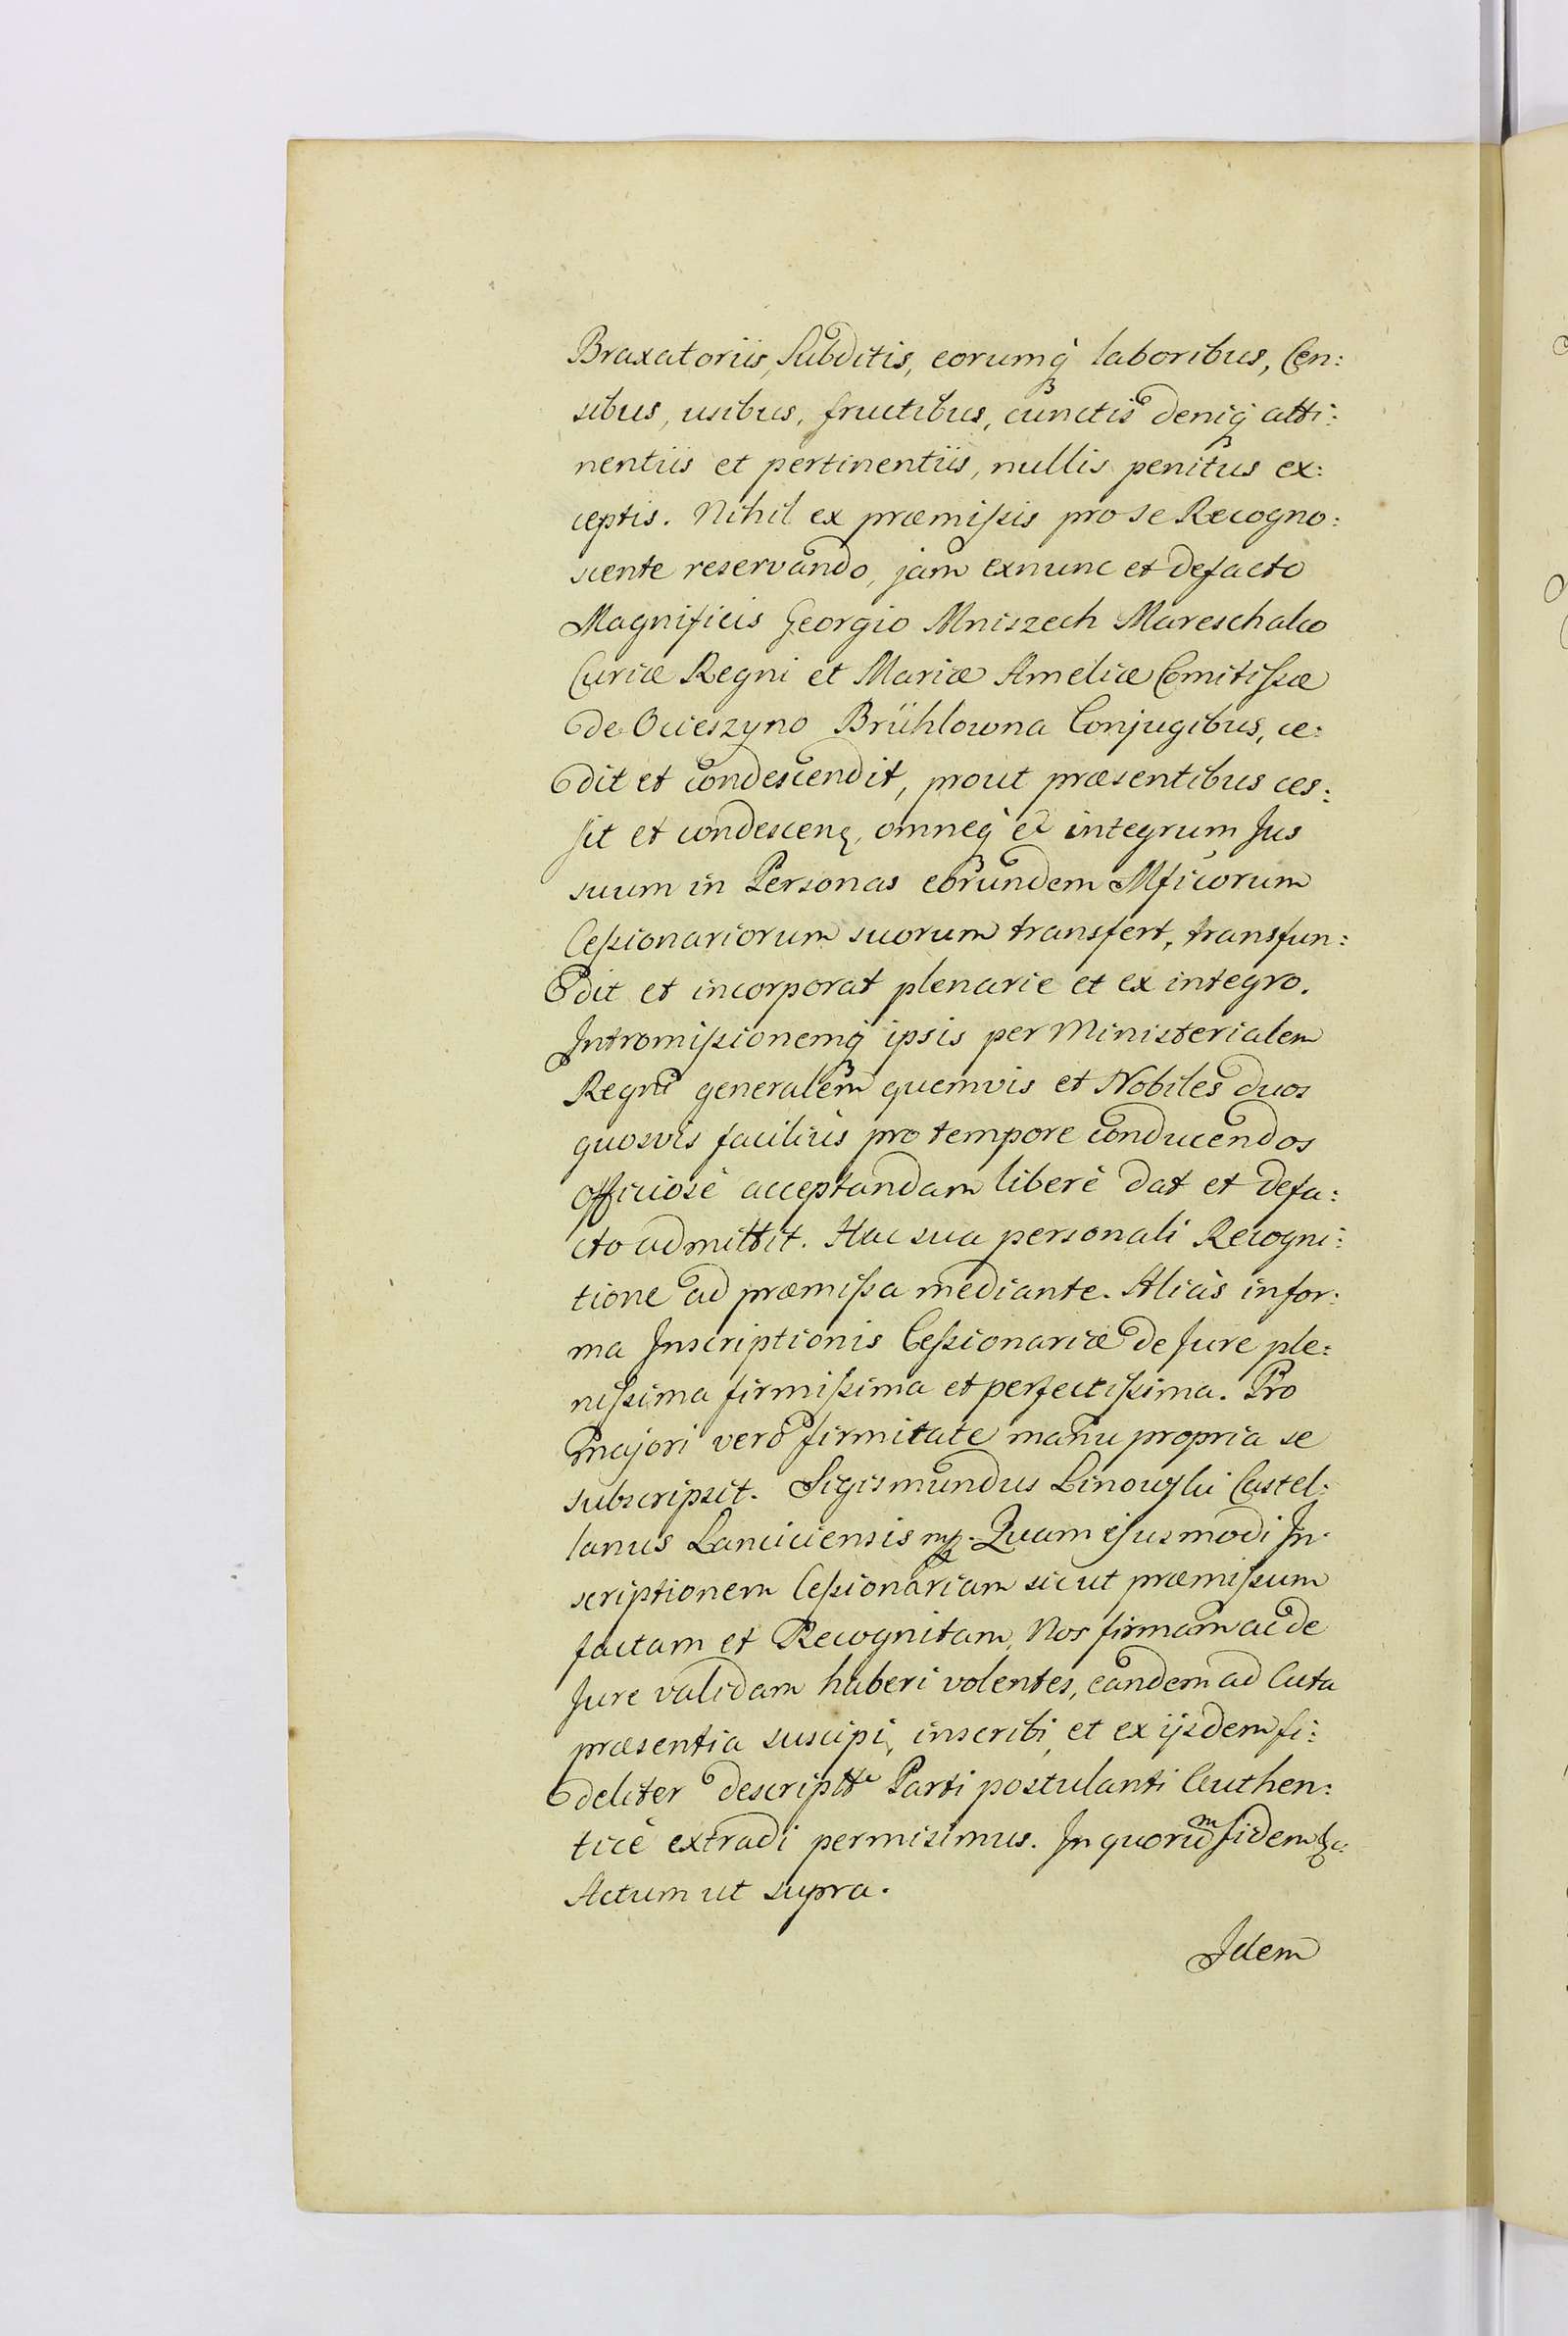 Braxatoriis, Subditis, eorumq́ laboribus, Cen:
sibus, usibus, fructibus, cunctis deniq́ atti:
nentiis et pertinentiis, nullis penitus ex:
ceptis. Nihil ex præmissis pro se Recogno:
scente reservando, jam exnunc et defacto
Magnificis Georgio Mniszech Mareschalco
Curiæ Regni et Mariæ Ameliæ Comitissæ
de Ocieszyno Brühlowna Conjugibus, ce:
dit et condescendit, prout præsentibus ces:
sit et condescen, omneq́ et integrum Jus
suum in Personas eorundem Mficorum
Cessionariorum suorum transfert, transfun:
dit et incorporat plenarie et ex integro.
Intromissionemq́ ipsis per Ministerialem
Regni generalem quemvis et Nobiles duos
quosvis faciliùs pro tempore conducendos
officiosè acceptandam liberè dat et defa:
cto admittit. Hac sua personali Recogni:
tione ad præmissa mediante. Aliàs infor:
ma Inscriptionis Cessionariæ de Jure ple:
nissima firmissima et perfectissima. Pro
majori verò firmitate manu propria se
subscripsit. Sigismundus Linowski Castel:
lanus Lanciciensis mp. Quam ejusmodi In:
scriptionem Cessionariam sicut præmissum
factam et Recognitam, Nos firmam ac de
Jure validam haberi volentes, eandem ad Acta
præsentia suscipi, inscribi, et ex ijsdem fi:
deliter descriptte Parti postulanti Authen:
ticè extradi permisimus. In quorum fidem &c:
Actum ut supra.
Idem